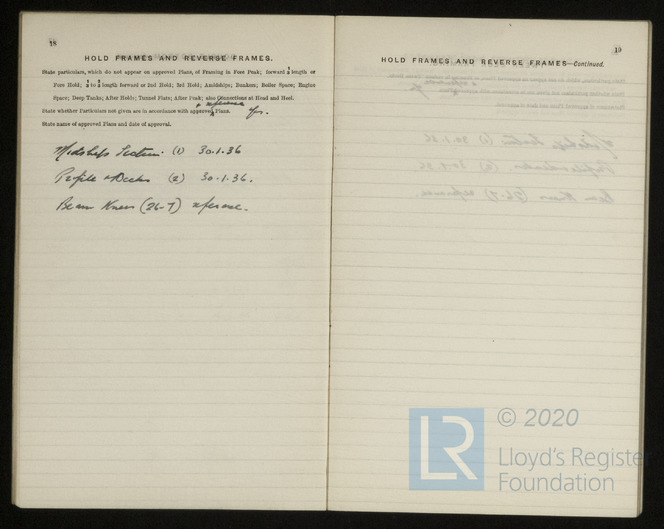 18
HOLD FRAMES AND REVERSE FRAMES.
State particulars, which do not appear on approved Plans, of Framing in Fore Peak; forward ⅕ length or
Fore Hold; ⅕ to ⅖ length forward or 2nd Hold; 3rd Hold; Amidships; Bunkers; Boiler Space; Engine
Space; Deep Tanks; After Holds; Tunnel Flats; After Peak; also Connections at Head and Heel.
& reference
State whether Particulars not given are in accordance with approved Plans. Yes.
State name of approved Plans and date of approval.
Midships Section (1) 30.1.36
Profile & Decks (2) 30.1.36.
Beam Knees (26-7) reference.
19
HOLD FRAMES AND REVERSE FRAMES—Continued.
LR
© 2020
Lloyd's Register
Foundation